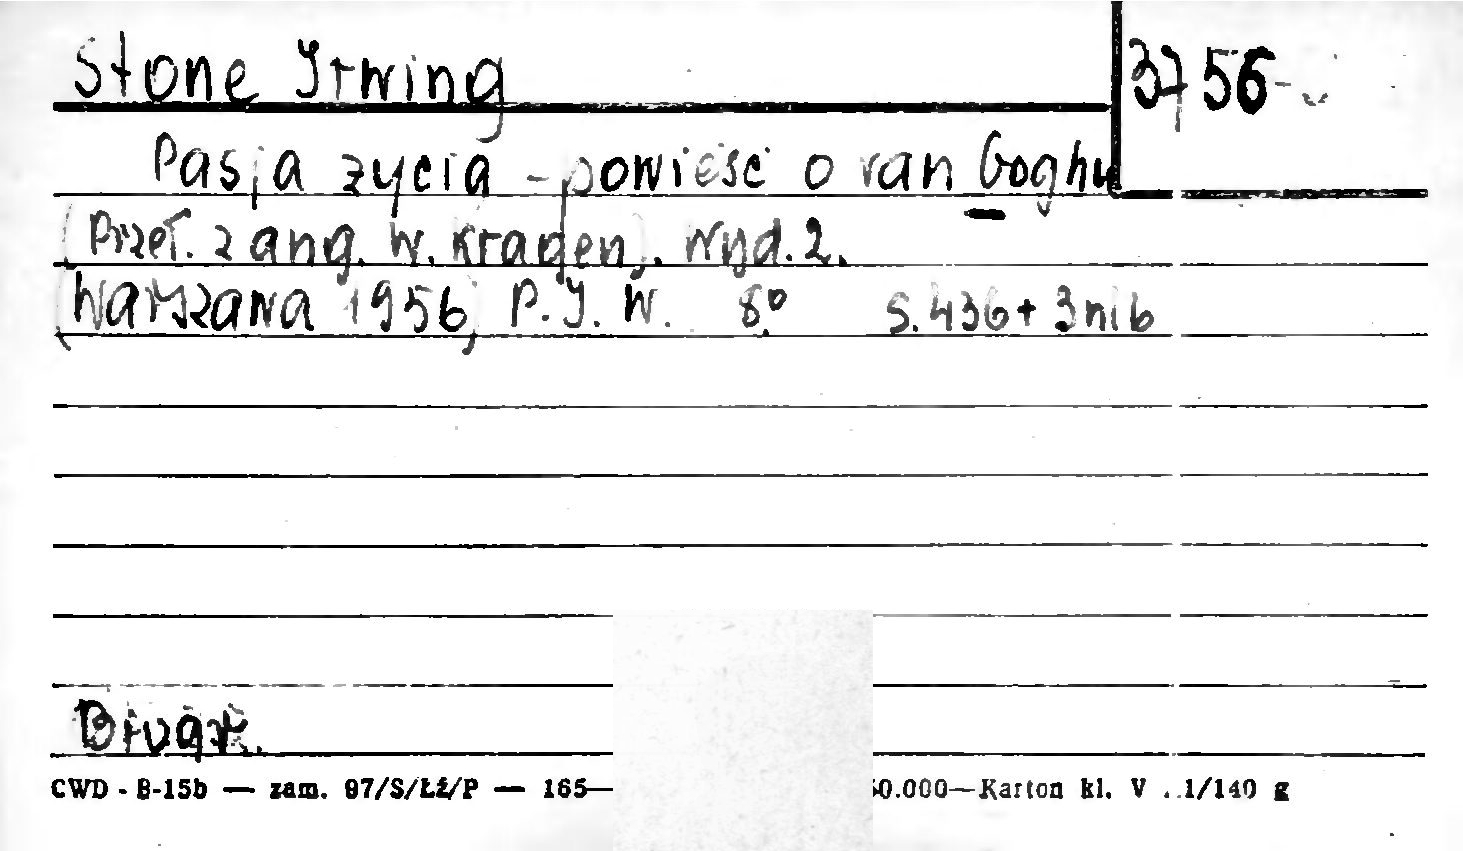 Stone Irwing
3756
Pasja życia - powieść o van Goghu
(Przeł. z ang. W. Kragen). Wyd. 2.
Warszawa 1956, P. I. W. 8° s. 436 + 3 nlb
CWD - B-15b — zam. 97/S/Łź/P — 165—
0.000—Karton kl. V 1/140 g